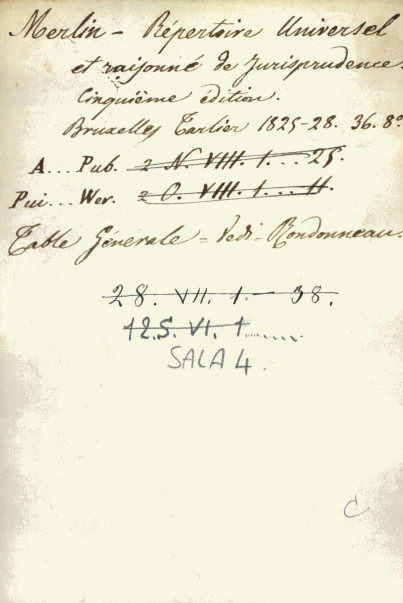 Merlin - Répertoire Universel
et raisonné de Jurisprudence.
Cinquième édition.
Bruxelles Tarlier 1825-28. 36. 8º
A... Pub. 2 N. VIII. 1.... 25.
Pui... Wer. 2 O. VIII. 1.... 11.
Table Générale = Vedi - Rondonneau.
28. VII. 1. — 38.
12.S. VI. 1........
SALA 4.
C